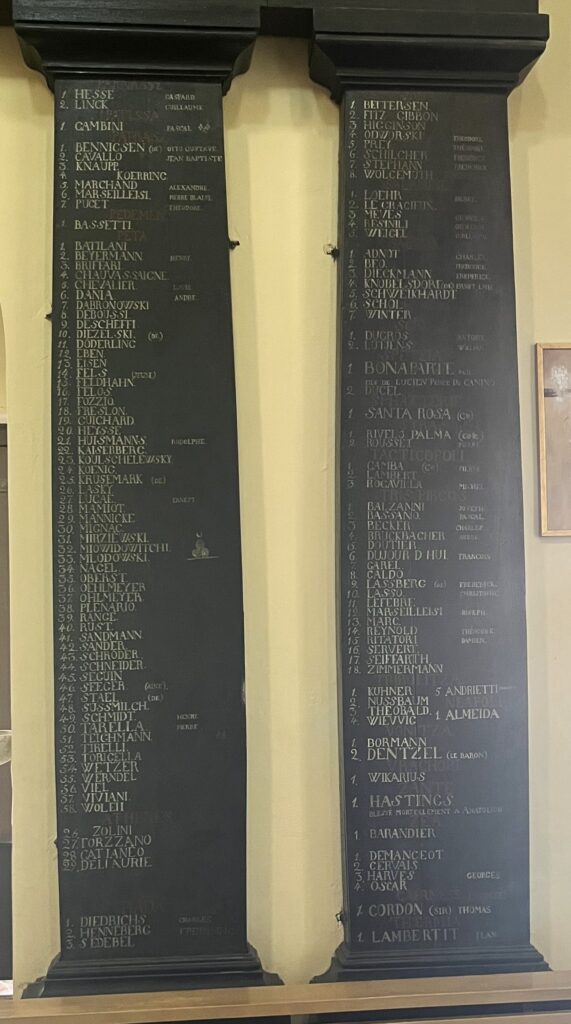 1. HESSE GASPARD.
2. LINCK GUILLAUME.
1. GAMBINI PASCAL
1. BENNIGSEN (DE) OTTO GUSTAVE.
2. CAVALLO JEAN BAPTISTE
3. KNAUPP.
4. KOERRING
5. MARCHAND ALEXANDRE.
6. MARSEILLEISI PIERRE BLAISE.
7. PUCET THEODORE.
1. BASSETTI
PETA
1. BATILANI
2. BEYERMANN HENRI.
3. BRIFFARI
4. CHAUVASSAIGNE.
5. CHEVALIER
6. DANIA ANDRE.
7. DABRONOWSKI
8. DEBOUSSI
9. DESCHEFFI
10. DIEZELSKI. (DE)
11. DÖDERLING
12. EBEN.
13. EISEN
14. FELS
15. FELDHAHN
16. FELOS
17. FOZZIO.
18. FRESLON.
19. GUICHARD.
20. HEYSSE
21. HUISMANNS RODOLPHE.
22. KAISERBERG.
23. KOULSCHELEWSKY.
24. KOENIG.
25. KRUSEMARK (DE)
26. LASKY
27. LUCAE. ERNEST
28. MAMIOT.
29. MANNICKE
30. MIGNAC.
31. MIRZIEWSKI.
32. MIOWIDOWITCHI.
33. MLODOWSKI.
34. NAGEL.
35. OBERST.
36. OEHLMEYER
37. OHLMEYER
38. PLENARIO.
39. RANGE.
40. RUST.
41. SANDMANN.
42. SANDER.
43. SCHRÖDER
44. SCHNEIDER.
45. SEGUIN
46. SEEGER
47. STAEL (DE)
48. SÜSSMILCH.
49. SCHMIDT. HENRI
50. TARELLA. PIERRE
51. TEICHMANN.
52. TIRELLI.
53. TORICELLA
54. WETZER
55. WERNDEL
56. VIEL
57. VIVIANI.
58. WOLEN
26. ZOLINI
27. TORZZANO
28. CATIANEO
29. DELLAURIE.
1. DIEDRICHS CHARLES
2. HENNEBERG
3. SEDEBEL
1. BEITERSEN.
2. FITZ GIBBON
3. HIGGINSON
4. ODWORSKI THEODORE.
5. PREY
6. SCHILCHER FREDERICK
7. STEPHANY FREDERICK
8. WOLGEMUTH.
1. LOEHR
2. LE GRACIEIN.
3. MEVES
4. RESINILI
5. WEIGEL
1. ADNOT CHARLES
2. BEO.
3. DIECKMANN
4. KNOBELSDORF (DE)
5. SCHWEIKHARDT
6. SCHOL
7. WINTER
1. DUCROS ANTOINE
2. LUTJENS
1. BONAPARTE
FILS DE LUCIEN PRINCE DE CANINO
2. DUCEL
1. SANTA ROSA (CTE)
1. RIVELS PALMA (CTE)
2. ROUSSET
TACTICOPOLI
1. GAMBA (CTE) PIERRE
2. LAMBERT
3. ROCAVILLA MICHEL
TRIS PIRGOS
1. BALZANNI JOSEPH
2. BASSANO. PASCAL
3. BECKER CHARLES
4. BRUCKBACHER
5. DOUTIER
6. DUJOUR D'HUI. FRANCOIS.
7. GAREL
8. GALDO
9. LASSBERG (DE) FREDERICK.
10. LASSO.
11. LEFEBRE
12. MARSEILLEISI JOSEPH.
13. MARC.
14. REYNOLD THEODORE
15. RITATORI DAMIEN.
16. SERVERT.
17. SEIFFARTH
18. ZIMMERMANN
1. KUHNER 5 ANDRIETTI
2. NUSSBAUM
3. THEOBALD.
4. WIEVVIC 1 ALMEIDA
1. BORMANN
2. DENTZEL (LE BARON)
1. WIKARIUS
ZANTE
1. HASTINGS
BLESSE MORTELLEMENT A ANATOLICO
1. BARANDIER
1. DEMANGEOT
2. GERVAIS
3. HARVES GEORGES
4. OSCAR
1. GORDON (SIR) THOMAS
1. LAMBERTIT JEAN